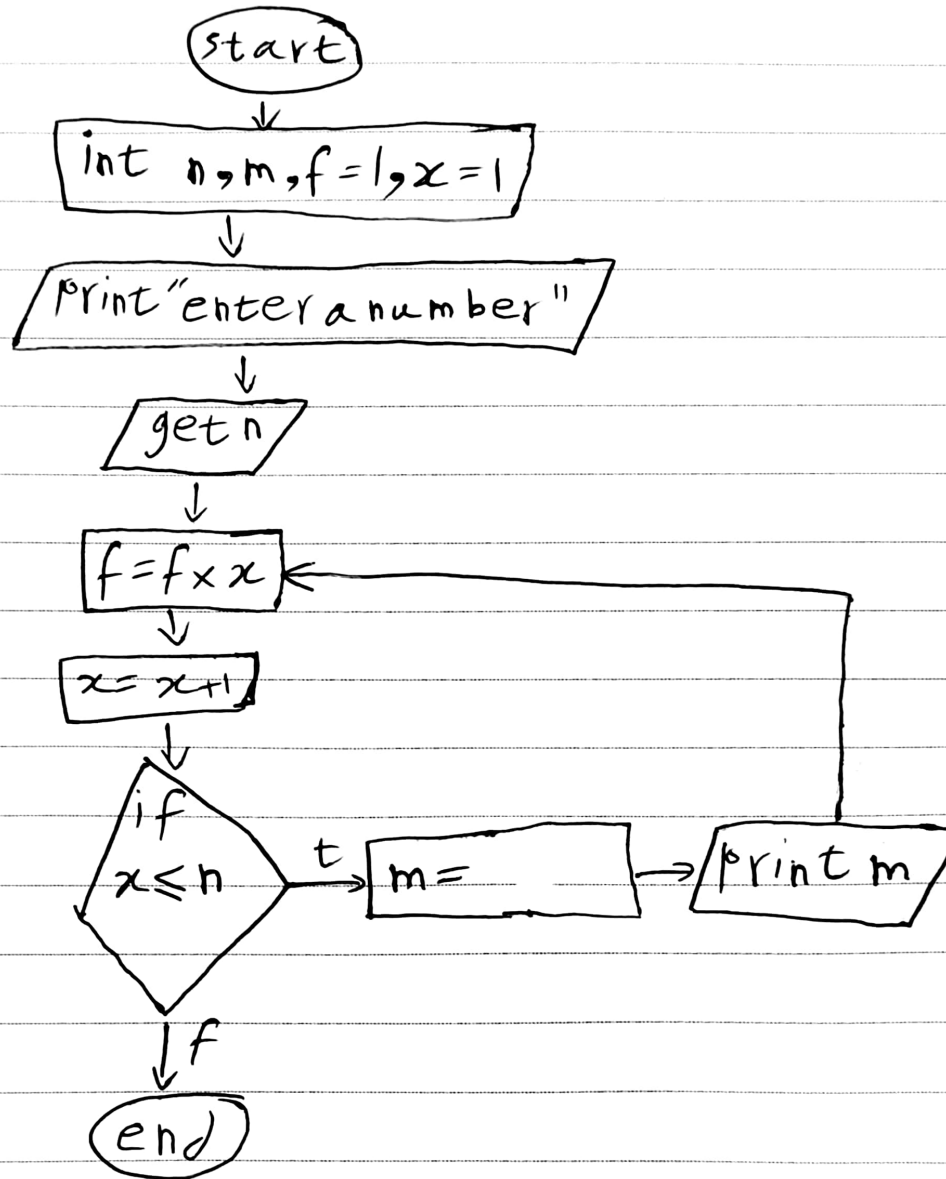 start
int n, m, f = 1, x = 1
print "enter a number"
get n
f = f × x
x = x+1
if
x ≤ n
t
m =
print m
f
end